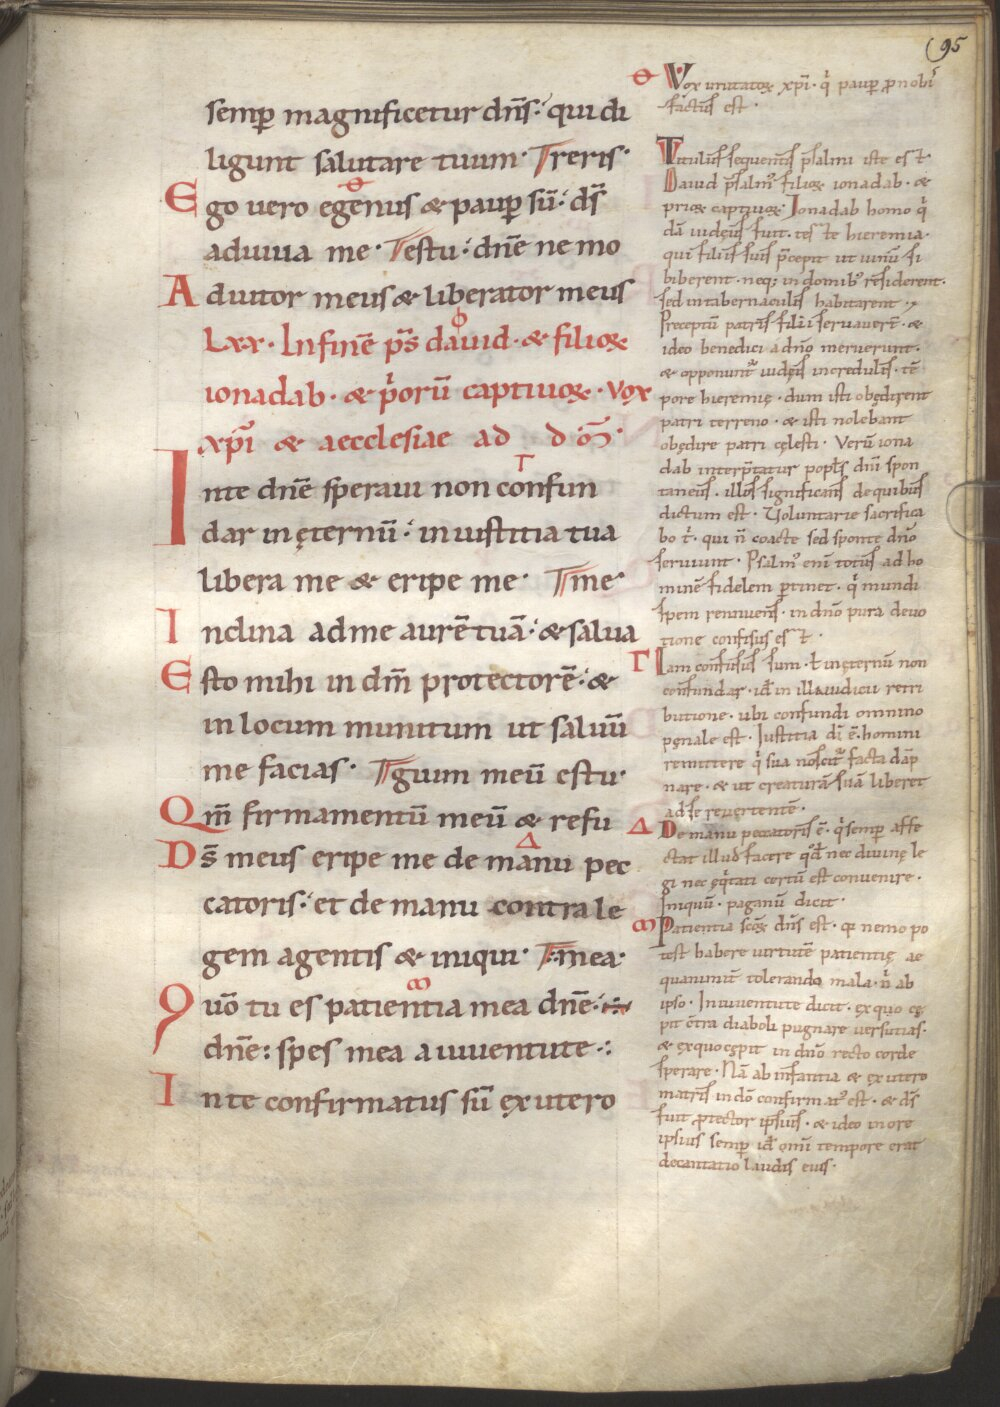 95
semp̄ magnificetur dn̄s: qui di
ligunt salutare tuum· Treris·
Ego uero egenus & paup̄ sū: ds̄
adiuua me· Testu: dnē ne mo
Adiutor meus & liberator meus
Lxx· In finē ps̄ dauid· & filioꝝ
ionadab· & p̍orū captiuoꝝ· vox
xp̄i & aecclesiae ad dōm̄·
Inte dnē speraui non confun
dar in ęternū: iniustitia tua
libera me & eripe me· Tme·
Inclina ad me aurē tuā: & salua
Esto mihi in dm̄ protectorē: &
in locum munitum ut saluū
me facias· Tguum meū estu·
Qm̄ firmamentū meū & refu
Ds̄ meus eripe me de manu pec
catoris: et de manu contra le
gem agentis & iniqui· T:mea·
Quō tu es patientia mea dnē:
dnē: spes mea a iuuentute·:
Inte confirmatus sū ex utero
Θ Vox imitatoꝝ xp̄i· q̍ paup̄ p nobi̍
factus est·
Titulus sequentis psalmi iste es t·
Dauid psalm' filioꝝ ionadab· &
prioꝝ captiuoꝝ· Ionadab homo q̍
dā iudęus fuit· teste hieremia·
qui filiis suis p̄cepit ut uinū n̄
biberent· neq; in domib' rēsiderent·
sed in tabernaculis habitarent·
Preceptū patris filii seruauer̄· &
ideo benedici a dn̄o meruerunt·
& opponunt' iudęis incredulis· tē
pore hieremię· dum isti obędirent
patri terreno· & isti nolebant
obędire patri cęlesti· Verū iona
dab interp̄tatur popl̄s dn̄i spon
taneus· illos significans de quibus
dictum est· Voluntarie sacrifica
bo t̍· qui n̄ coacte sed sponte dn̄o
seruiunt· Psalm' eni totus ad ho
minē fidelem p̄tinet· q̍ mundi
spem renuens· in dn̄o pura deuo
tione confisus es t·
Γ Iam confusus sum· t̵ in ęternū non
confundar· id̄ in illa iudicii retri
butione· ubi confundi omnino
pęnale est· Iustitia dī ē· homini
remittere q̍ sua noscit' facta dāp
nare· & ut creaturā suā liberet
ad se reuertentē·
Δ De manu peccatoris ē· q̍ semp̄ affe
ctat illud facere qd̄ nec diuinę le
gi nec ęq̍tati certū est conuenire·
Iniquū· paganū dicit·
Patientia scōꝝ dn̄s est· qa nemo po
test habere uirtutē patientię ae
quanimit̄ tolerando mala· n̍ ab
ipso· In iuuentute dicit· ex quo cę
pit cōtra diaboli pugnare uersutias·
& ex quo cępit in dn̄o recto corde
sperare· Nā ab infantia & ex utero
matris in dō confirmat' est· & ds̄
fuit p̱tector ipsius· & ideo in ore
ipsius semp̄ id̄ omī tempore erat
decantatio laudis eius·